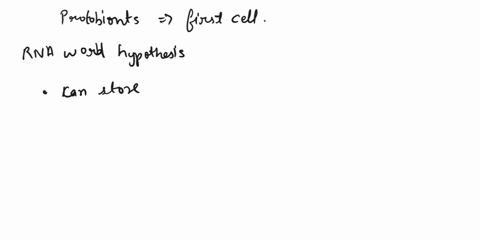 Protobionts => first cell.
RNA world hypothesis
• can store